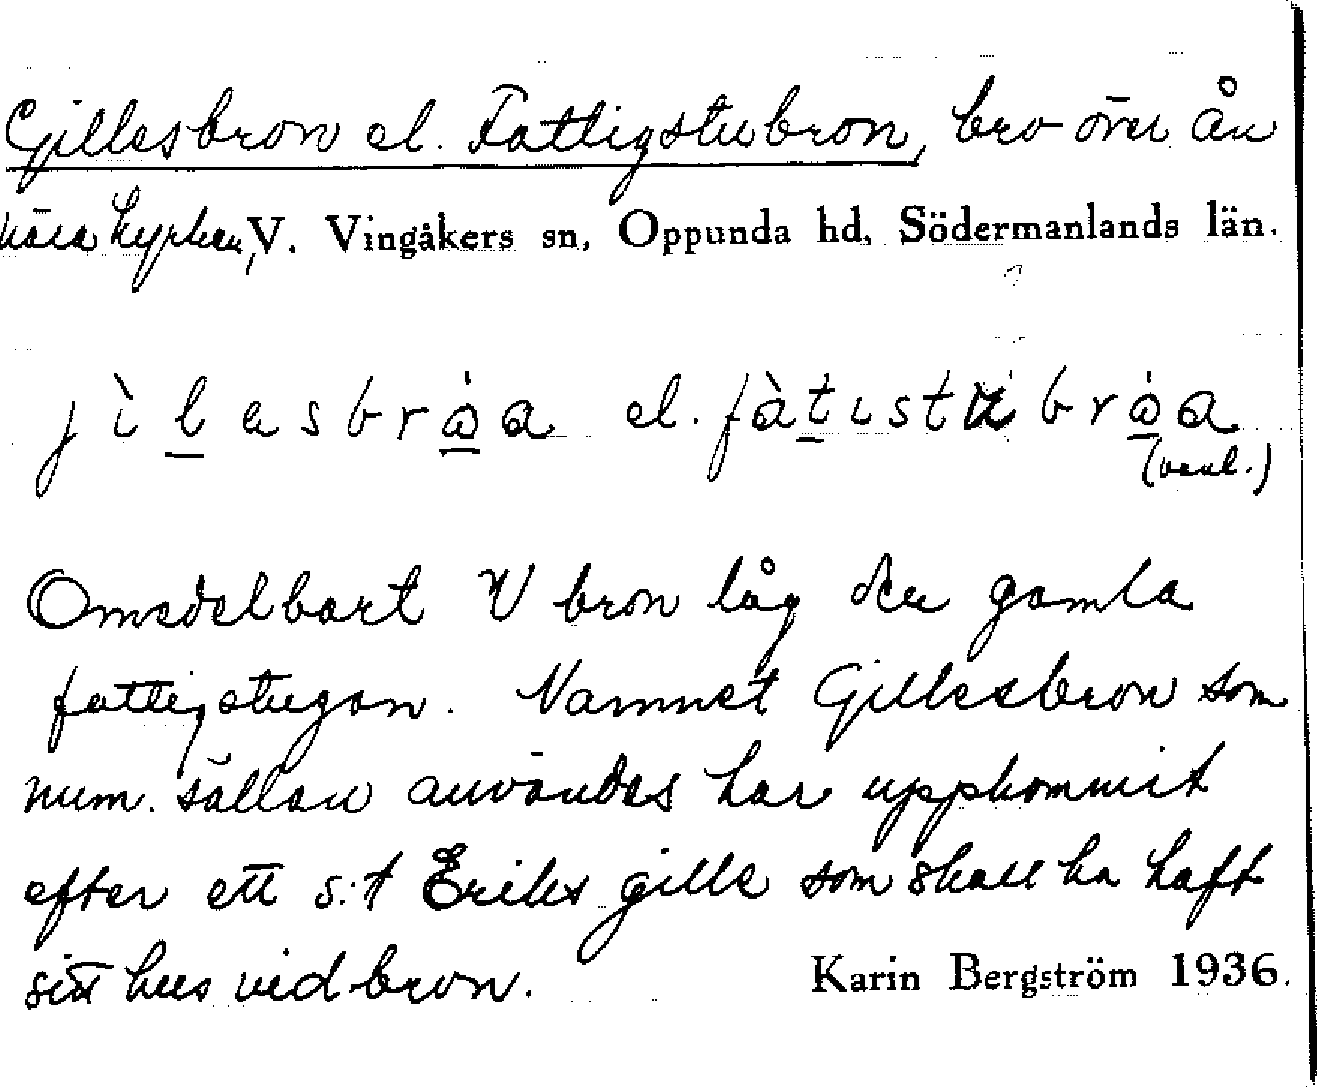 Gillesbron el. Fattigstubron, bro över ån
nära kyrkan, V. Vingåkers sn, Oppunda hd, Södermanlands län.
jìlesbrǻa el. fàtistubrǻa
(vanl.)
Omedelbart V bron låg den gamla
fattigstugan. Namnet Gillesbron som
num. sällan användes har uppkommit
efter ett s:t Eriks gille som skall ha haft
sitt hus vid bron. Karin Bergström 1936.